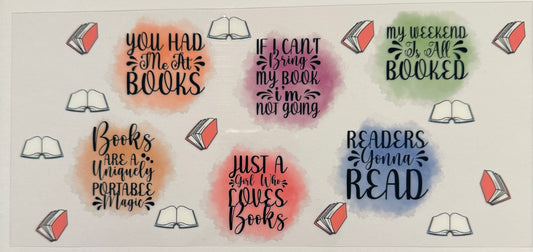 YOU HAD
Me At
BOOKS
IF I CAN'T
Bring
MY BOOK
i'm
NOT GOING
MY WEEKEND
Is All
BOOKED
Books
ARE A
Uniquely
PORTABEE
Magic
JUST A
Girl Who
LOVES
Books
READERS
Gonna
READ